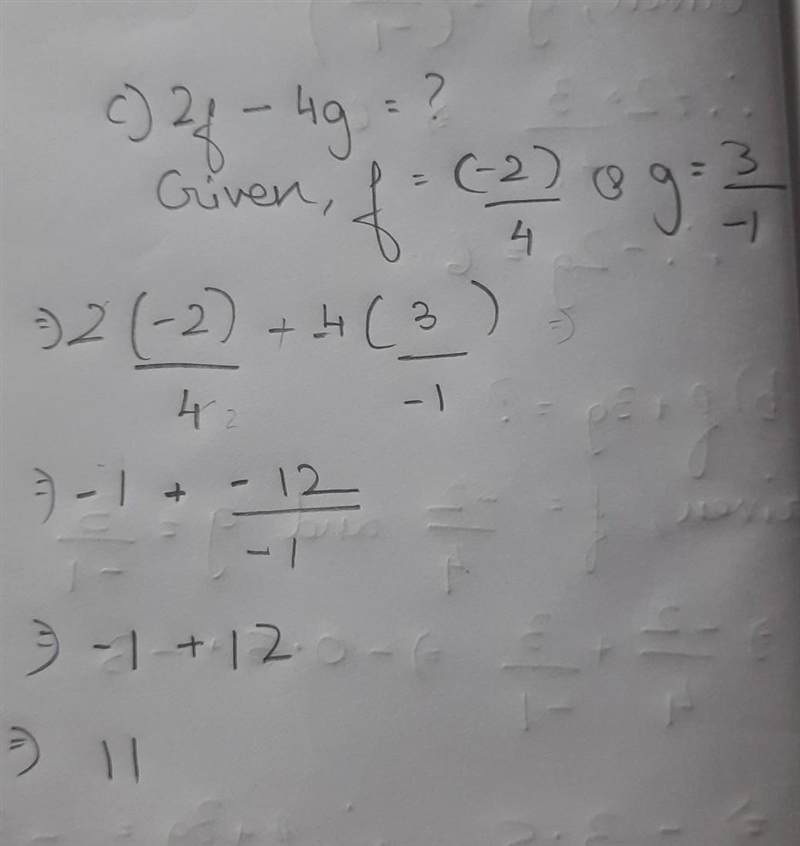 c) 2f - 4g = ?
Given, f = (-2)/4 & g = 3/-1
⇒ 2 (-2)/4 2 + -4 ( 3/-1 ) ⇒
⇒ -1 + -12/-1
⇒ -1 + 12
⇒ 11